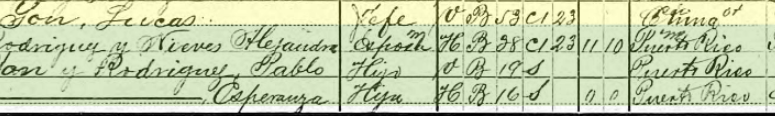 Gon, Lucas Jefe V B 53 C1 23 China ot
Rodriguez y Nieves Alejandra Esposa m H B 38 C1 23 11 10 Puerto Rico
Gon y Rodriguez, Pablo Hijo V B 19 S Puerto Rico
, Esperanza Hija H B 16 S 0 0 Puerto Rico